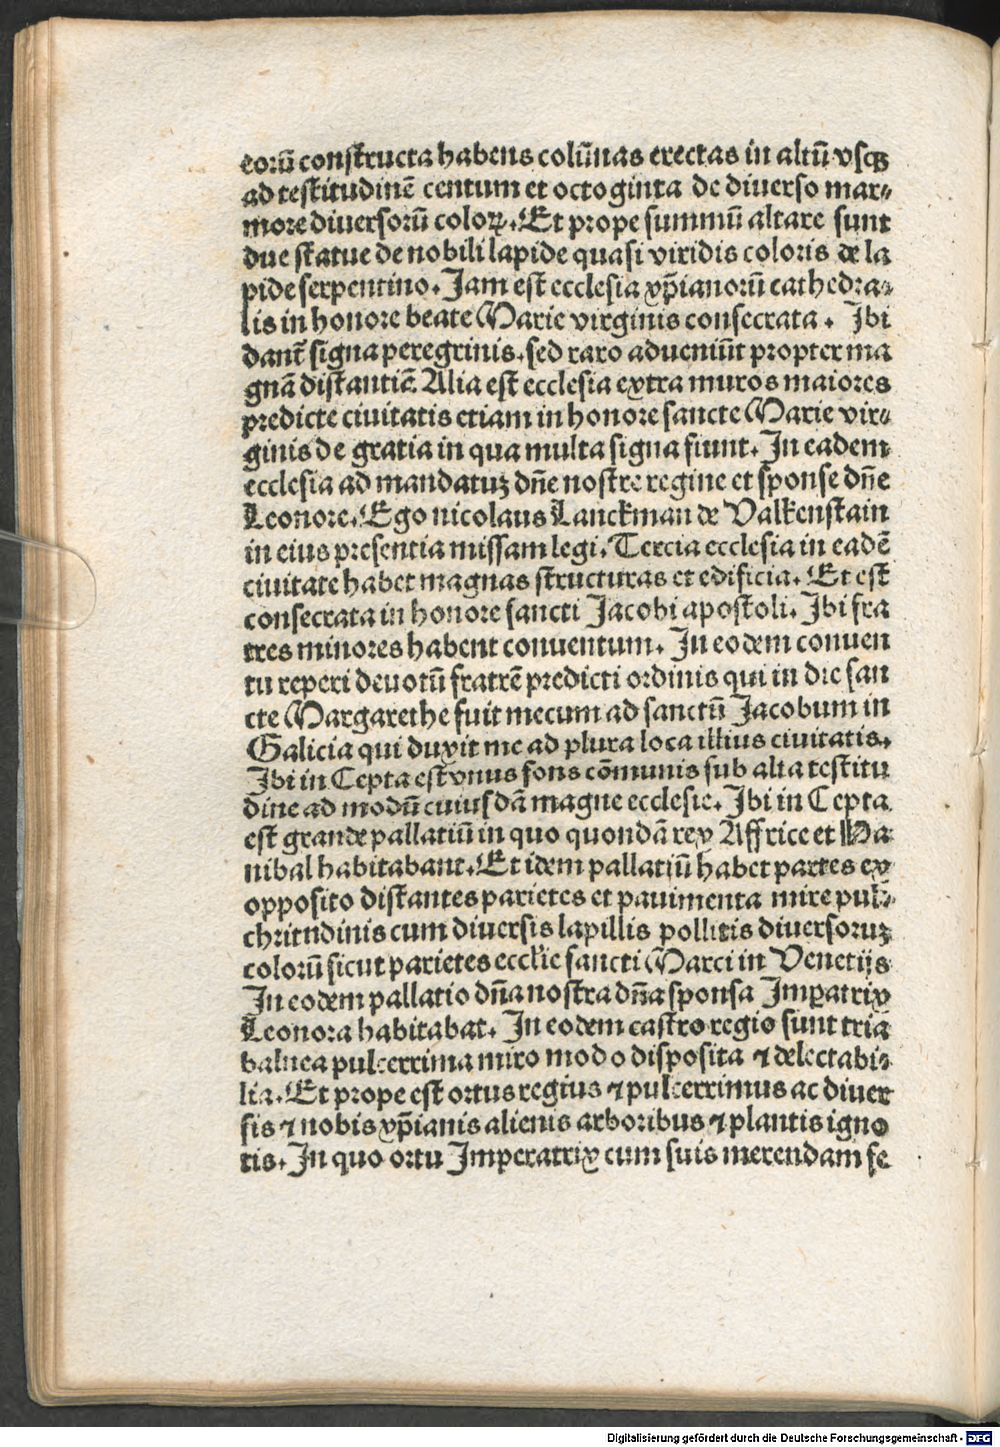 eorū constructa habens colūnas erectas in altū vsqꝫ
ad testitudinē centum et octoginta de diuerso mar⸗
more diuersorū coloꝝ. Et prope summū altare sunt
due statue de nobili lapide quasi viridis coloris de la
pide serpentino. Jam est ecclesia xp̄ianorū cathedra⸗
lis in honore beate Marie virginis consecrata. Ibi
danť signa peregrinis. sed raro adueniūt propter ma
gnā distantiā. Alia est ecclesia extra muros maiores
predicte ciuitatis etiam in honore sancte Marie vir⸗
ginis de gratia in qua multa signa fiunt. In eadem
ecclesia ad mandatuꝫ dn̄e nostre regine et sponse dn̄e
Leonore. Ego nicolaus Lanckman de Valkenstain
in eius presentia missam legi. Tercia ecclesia in eadē
ciuitate habet magnas structuras et edificia. Et est
consecrata in honore sancti Jacobi apostoli. Ibi fra
tres minores habent conuentum. In eodem conuen
tu reperi deuotū fratrē predicti ordinis qui in die san
cte Margarethe fuit mecum ad sanctū Jacobum in
Galicia qui duxit me ad plura loca illius ciuitatis.
Ibi in Cepta est vnus fons cōmunis sub alta testitu
dine ad modū cuiusdā magne ecclesie. Ibi in Cepta
est grande pallatiū in quo quondā rex Affrice et Ha
nibal habitabant. Et idem pallatiū habet partes ex
opposito distantes parietes et pauimenta mire pul⸗
chritudinis cum diuersis lapillis pollitis diuersoruꝫ
colorū sicut parietes eccl̓ie sancti Marci in Venetijs
In eodem pallatio dn̄a nostra dn̄a sponsa Imꝑatrix
Leonora habitabat. In eodem castro regio sunt tria
balnea pulcerrima miro modo disposita ⁊ delectabi⸗
lia. Et prope est ortus regius ⁊ pulcerrimus ac diuer
sis ⁊ nobis xp̄ianis alienis arboribus ⁊ plantis igno
tis. In quo ortu Imperatrix cum suis merendam se
Digitalisierung gefördert durch die Deutsche Forschungsgemeinschaft - DFG